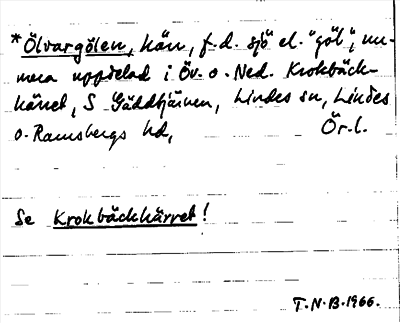 *Ölvargölen, kärr, f.d. sjö el. "göl", nu-
mera uppdelad i Öv. o. Ned. Krokbäck-
kärret, S Gäddtjärnen, Lindes sn, Lindes
o. Ramsbergs hd, Ör. l.
Se Krokbäckkärret!
T.N.B. 1966.